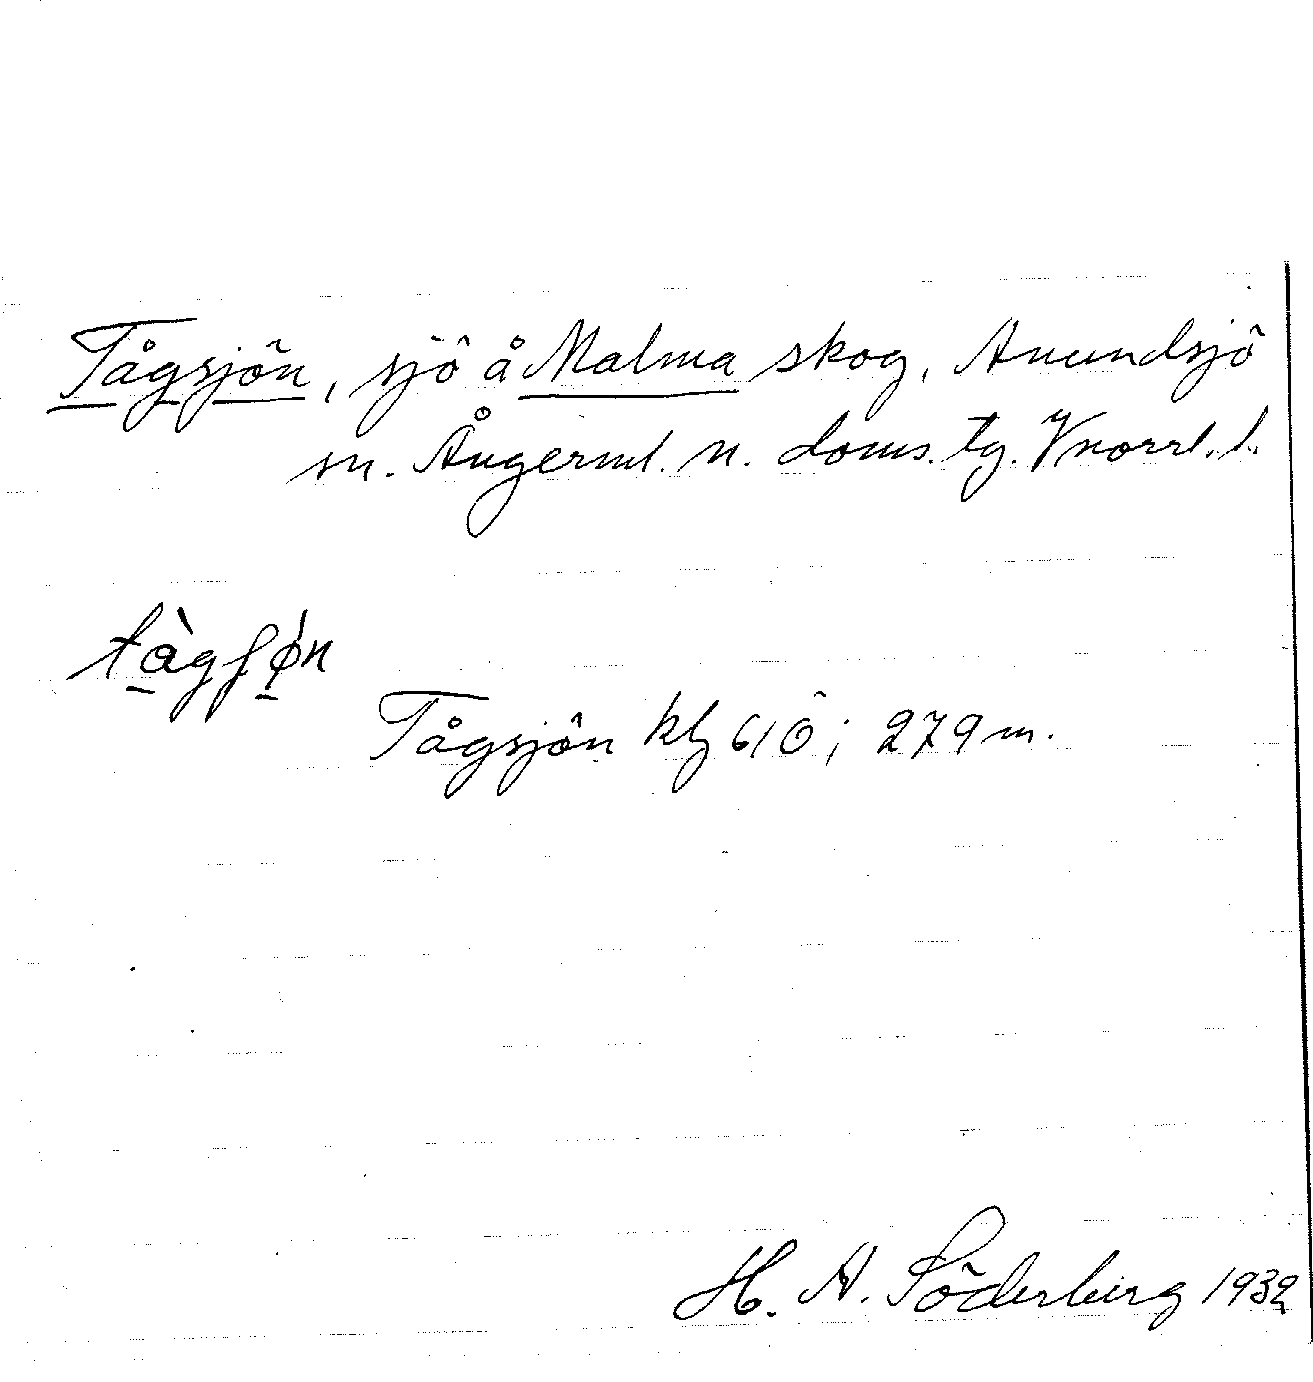 Tågsjön, sjö å Malma skog, Anundsjö
sn. Ångerml. n. doms. tg. Vnorrl. l.
tàgʃǿn
Tågsjön kbl 61 Ö; 279 m.
H. A. Söderberg 1932